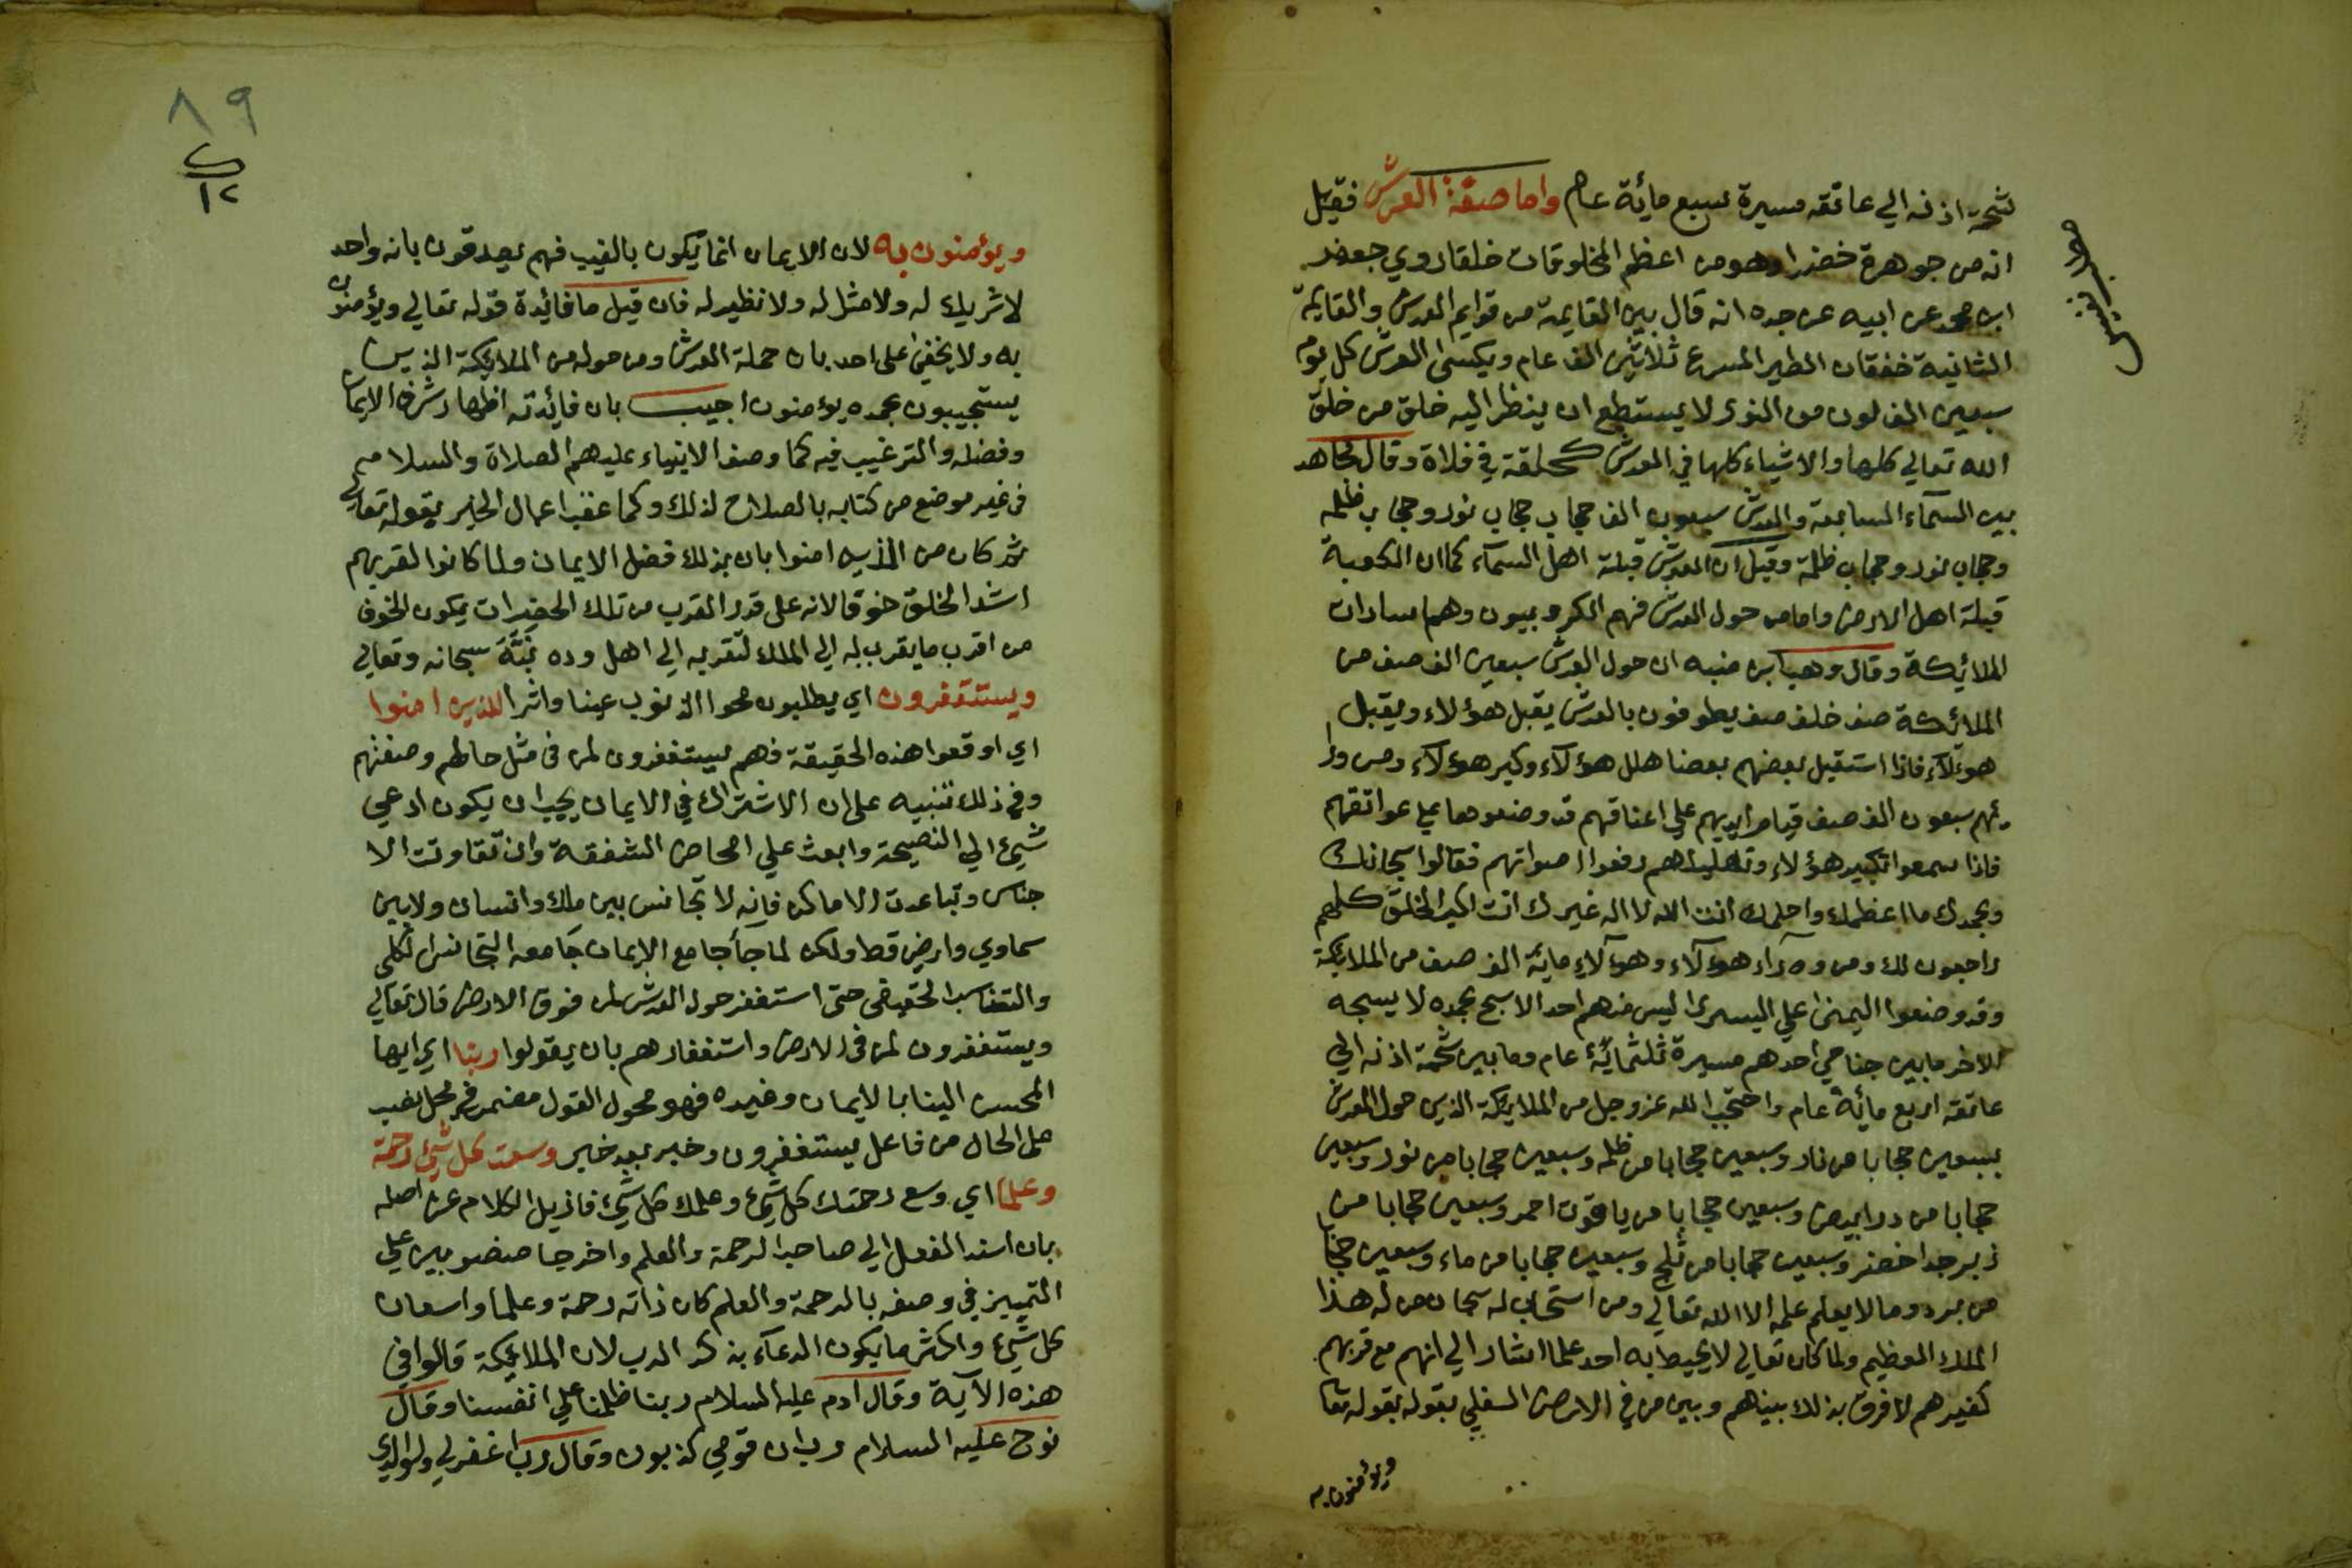 شحمة اذنه الي عاتقه مسيرة سبع مائة عام واما صفة العرش فقيل
انه من جوهرة خضرا وهو من اعظم المخلوقات خلقا روي جعفر
ابن محمد عن ابيه عن جده انه قال بين القايمة من قوايم العرش والقايمة
الثانية خفقان الطير المسرع ثلاثين الف عام ويكسى العرش كل يوم
سبعين الف لون من النور لا يستطع ان ينظر اليه خلق من خلق
الله تعالي كلها والاشياء كلها في العرش كحلقة في فلاة وقال مجاهد
بين السمآء السابعة والعرش سبعون الف حجاب حجاب نور وحجاب ظلمه
وحجاب نور وحجاب ظلمة وقيل ان العرش قبلة اهل السمآء كما ان الكعبة
قبلة اهل الارض واما من حول العرش فهم الكروبيون وهم سادات
الملائكة وقال وهب ابن منبه ان حول العرش سبعين الف صف من
الملائكة صف خلف صف يطوفون بالعرش يقبل هؤلاء ويقبل
هؤلآء فاذا استقبل بعضهم بعضا هلل هؤلآء وكبر هؤلآء ومن ورا
ئهم سبعون الف صف قيام ايديهم علي اعناقهم قد وضعوها علي عواتقهم
فاذا سمعوا تكبير هؤلاء وتهليلهم رفعوا اصواتهم فقالوا سبحانك
وبحمدك ما اعظمك واحلمك انت الله لا اله غيرك انت اكبر الخلق كلهم
راجعون لك ومن ورآء هؤلآء وهؤلآء مائة الف صف من الملايكة
وقد وضعوا اليمنى علي اليسرى ليس منهم احد الا سبح بحمده لا يسبحه
الاخر ما بين جناحي احدهم مسيرة ثلثمائة عام وما بين شحمة اذنه الي
عاتقه اربع مائة عام واحتجب الله عز وجل من الملايكة الذين حول العرش
بسبعين حجابا من نار وسبعين حجابا من ظلمه وسبعين حجابا من نور وسبعين
حجابا من در ابيض وسبعين حجابا من ياقوت احمر وسبعين حجابا من
زبرجد اخضر وسبعين حجابا من ثلج وسبعين حجابا من ماء وسبعين حجابا
من برد وما لا يعلم علمه الا الله تعالي ومن له هذا
الملك العظيم ولما كان تعالي لا يحيط به احد علما اشار الي انهم مع قربهم
كغيرهم لا فرق بذلك بينهم وبين من في الارض السفلي بقوله بقوله تعا
ويؤمنون به
٨٩
١٢
ويؤمنون به لان الايمان انما يكون بالغيب فهم يصدقون بانه واحد
لا شريك له ولا مثل له ولا نظير له فان قيل ما فائدة قوله تعالي ويؤمنون
به ولا يخفى على احد بان حملة العرش ومن حوله من الملايكة الذين
يستجيبون بحمده يؤمنون اجيب بان فائدته اظهار شرف الايمان
وفضله والترغيب فيه كما وصف الانبياء عليهم الصلاة والسلام
فى غير موضع من كتابه بالصلاح لذلك وكما عقب اعمال الخير بقوله تعالي
ثم كان من الذين امنوا بان بذلك فضل الايمان ولما كانوا لقربهم
اشد الخلق خوفا لانه على قدر القرب من تلك الحضرات يكون الخوف
من اقرب ما يقرب به الي الملك لتقربه الي اهل وده نبّه سبحانه وتعالي
ويستغفرون اي يطلبون محو الذنوب عينا واثرا للذين امنوا
اي اوقعوا هذه الحقيقة فهم يستغفرون لمن فى مثل حالهم وصفتهم
وفي ذلك تنبيه على ان الاشتراك في الايمان يجب ان يكون ادعي
شيئ الي النصيحة وابعث علي امحاض الشفقة وان تفاوتت الا
جناس وتباعدت الاماكن فانه لا تجانس بين ملك وانسان ولا بين
سماوي وارضي قط ولكن لما جآ جامع الايمان جآ معه التجانس الكلي
والتناسب الحقيقى حتى استغفر من حول العرش لمن فوق الارض قال تعالي
ويستغفرون لمن فى الارض واستغفارهم بان يقولوا ربنا اي ايها
المحسن الينا بالايمان وغيره فهو محول القول مضمر فى محل نصب
على الحال من فاعل يستغفرون وخبر بعد خبر وسعت كل شيئ رحمة
وعلما اي وسع رحمتك كل شيئ وعلمك كل شيئ فازيل الكلام عن اصله
بان اسند الفعل الي صاحب الرحمة والعلم واخرجا منصوبين علي
التمييز في وصفه بالرحمة والعلم كان ذاته رحمة وعلما واسعان
كل شيئ واكثر ما يكون الدعآء بذكر الرب لان الملايكة قالوا في
هذه الآية وقال ادم عليه السلام ربنا ظلمنا انفسنا وقال
نوح عليه السلام رب ان قومي كذبون وقال رب اغفر لي ولوالدي